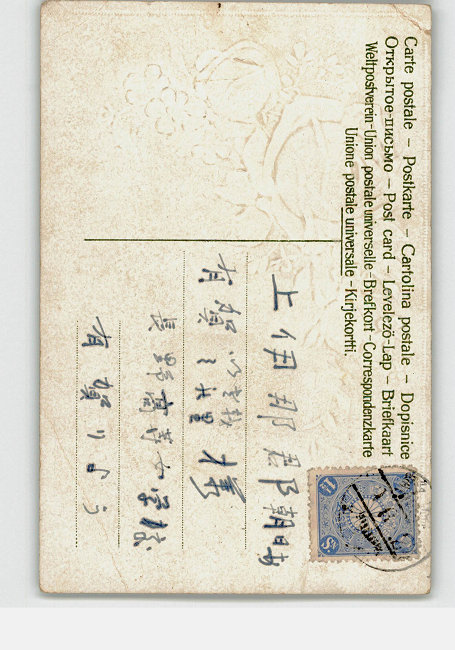 Carte postale – Postkarte – Cartolina postale – Dopisnice
Открытое-письмо – Post card – Levelezö-Lap – Briefkaart
Weltpostverein-Union postale universelle-Brefkort-Correspondenzkarte
Unione postale universale -Kirjekortti.
上伊那郡朝日村
有賀 様
長野高等女学校
有賀りよう
1½ Sn